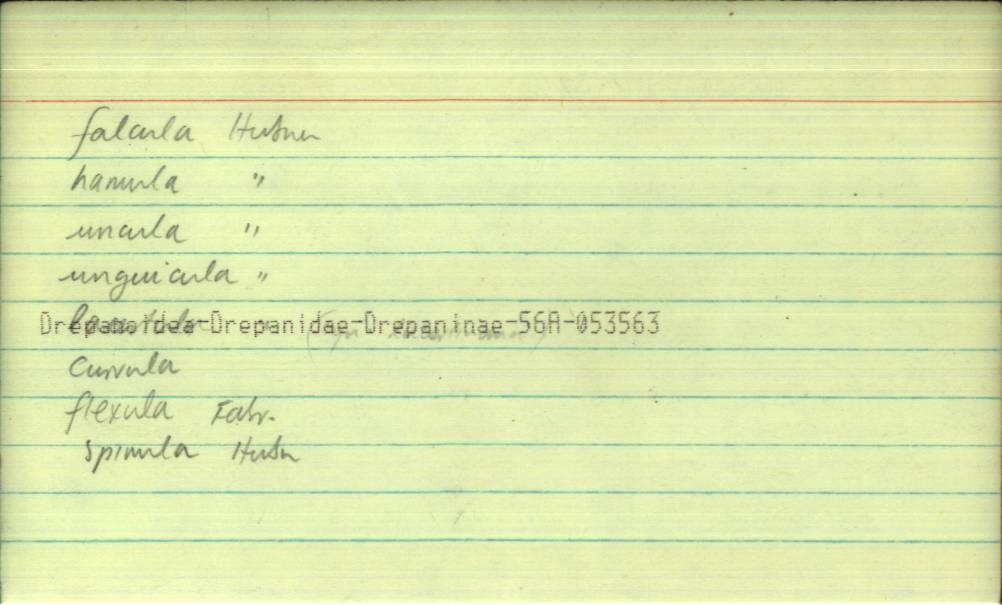 falcula Hubner
hamula "
uncula "
unguicula "
Drepanoidea-Drepanidae-Drepaninae-56A-053563
curvula
flexula Fabr.
spinula Hubn